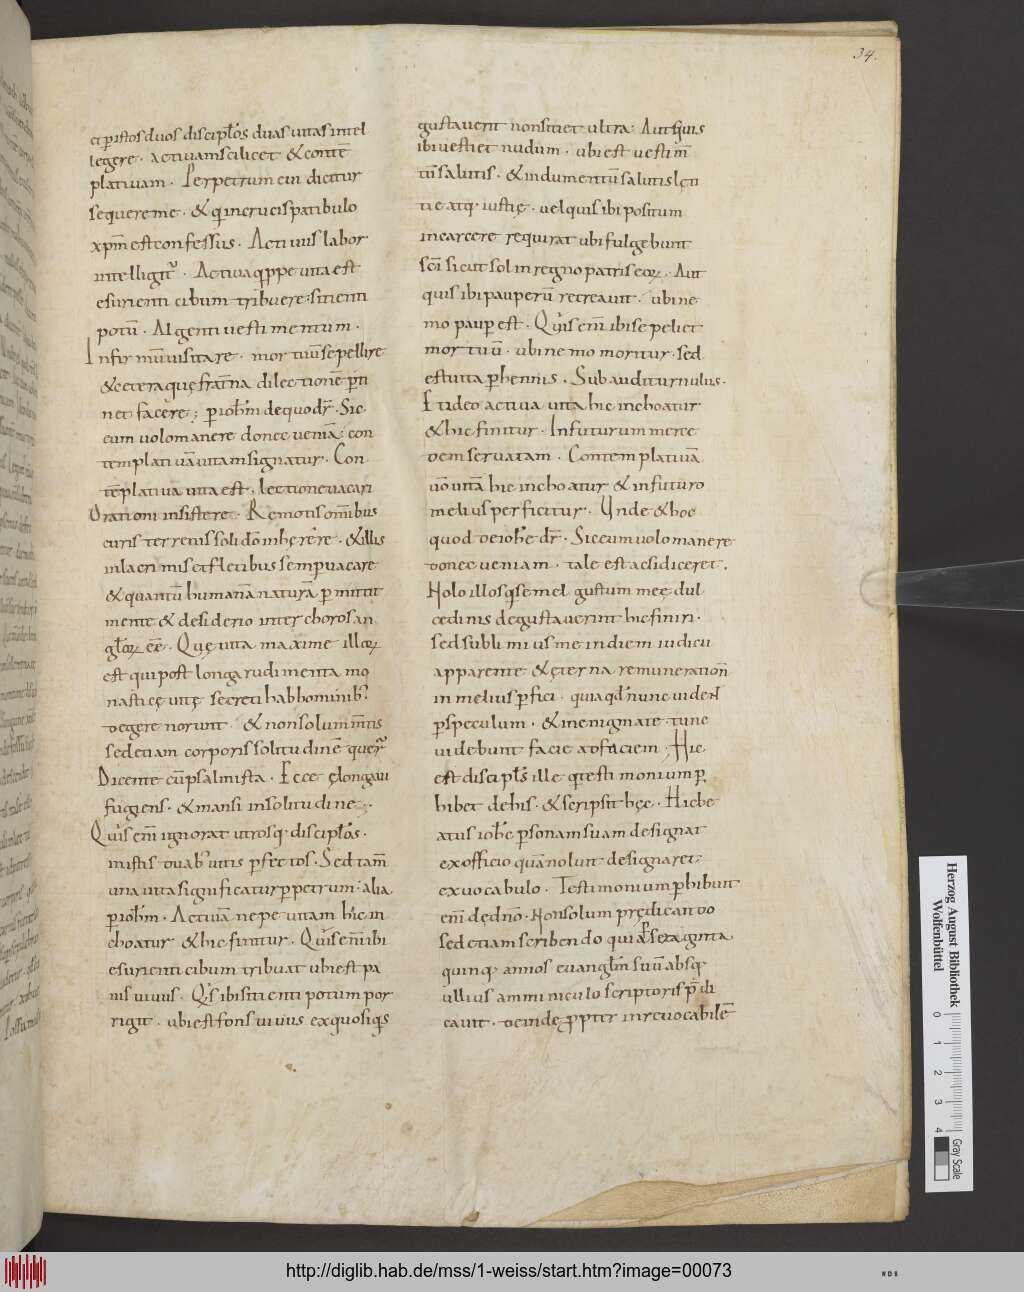 34.
et p istos duos discipl̄os duas uitas intel
legere. actiuam scilicet & contē
platiuam. Per petrum cui dicitur
sequere me. & qui in crucis patibulo
xpm̄ est confessus. Actiuus labor
intelligit᷑. Actiua q̄ppe uita est
esurienti cibum tribuere. sitienti
potū. Algenti uestimentum.
Infirmū uisitare. mortuū sepellire
& cetera quę fra̅t̅na dilectionē p̄ti
net facere; p ioh̄m de quo dr̄. Sic
eum uolo manere donec ueniā. con
templatiuā uitam signatur. Con
tēplatiua uita est, lectione uacari
Orationi insistere. Remotis om̄ibus
curis terrenis soli dō inhęrere. & illis
in lacrimis et fletibus semp uacare
& quantū humanā naturā pmittit
mente & desiderio inter choros an
gl̄oꝝ eē. Quę uita maxime illoꝝ
est qui post longa rudimenta mo
nasticę uitę secreti hab hominib;
degere norunt. & non solum m̄tis
sed etiam corporis solitudinē quer᷑
Dicente cū psalmista. Ecce elongaui
fugiens. & mansi in solitudine.
Quis em̄ ignorat utrosq; discipl̄os.
in istis duab; uitis pfectos. Sed tam̄
una uita significatur p petrum. alia
p ioh̄m. Actiuā nępe uitam hic in
choatur & hic finitur. Quis em̄ ibi
esurienti cibum tribuat ubi est pa
nis uiuus. Q̄s ibi sitienti potum por
rigit. ubi est fons uiuus ex quo siq̄s
gustauerit non sitiet ultra. Aut quis
ibi uestiet nudum. ubi est uestim̄
tū salutis. & indumentū salutis lęti
tię atq; iustię. uel quis ibi positum
in carcere requirat ubi fulgebunt
sc̄i sicut sol in regno patris eoꝝ. Aut
quis ibi pauperū recreauit. ubi ne
mo paup est. Quis em̄ ibi sepeliet
mortuū. ubi nemo moritur. sed
est uita phennis. Subauditur nullus.
Et ideo actiua uita hic inchoatur
& hic finitur. In futurum merce
dem seruatam. Contemplatiuā
uō uitā hic inchoatur & in futuro
melius perficitur. Unde & hoc
quod de ioh̄e dr̄. Sic eum uolo manere
donec ueniam. tale est ac si diceret.
Nolo illos q̄ semel gustum meę dul
cedinis degustauerint hic finiri.
sed sublimius me in diem iudicii
apparente & ęterna remuneration̄
in melius pfici. quia qd nunc uident
p speculum. & in enigmate. tunc
uidebunt facie ad faciem. Hic
est discipl̄s ille q̄ testimonium p
hibet de his. & scripsit hęc. Hic be
atus ioh̄e personam suam designat
ex officio quā noluit designaret
ex uocabulo. Testimonium phibuit
em̄ de dn̄o. Non solum prędicando
sed etiam scribendo quia p sexaginta
quinq; annos euangl̄m suū absq;
ullius amminiculo scriptoris p̄di
cauit. deinde ppter inreuocabilē
Herzog August Bibliothek
Wolfenbüttel
0 1 2 3 4
Gray Scale
http://diglib.hab.de/mss/1-weiss/start.htm?image=00073